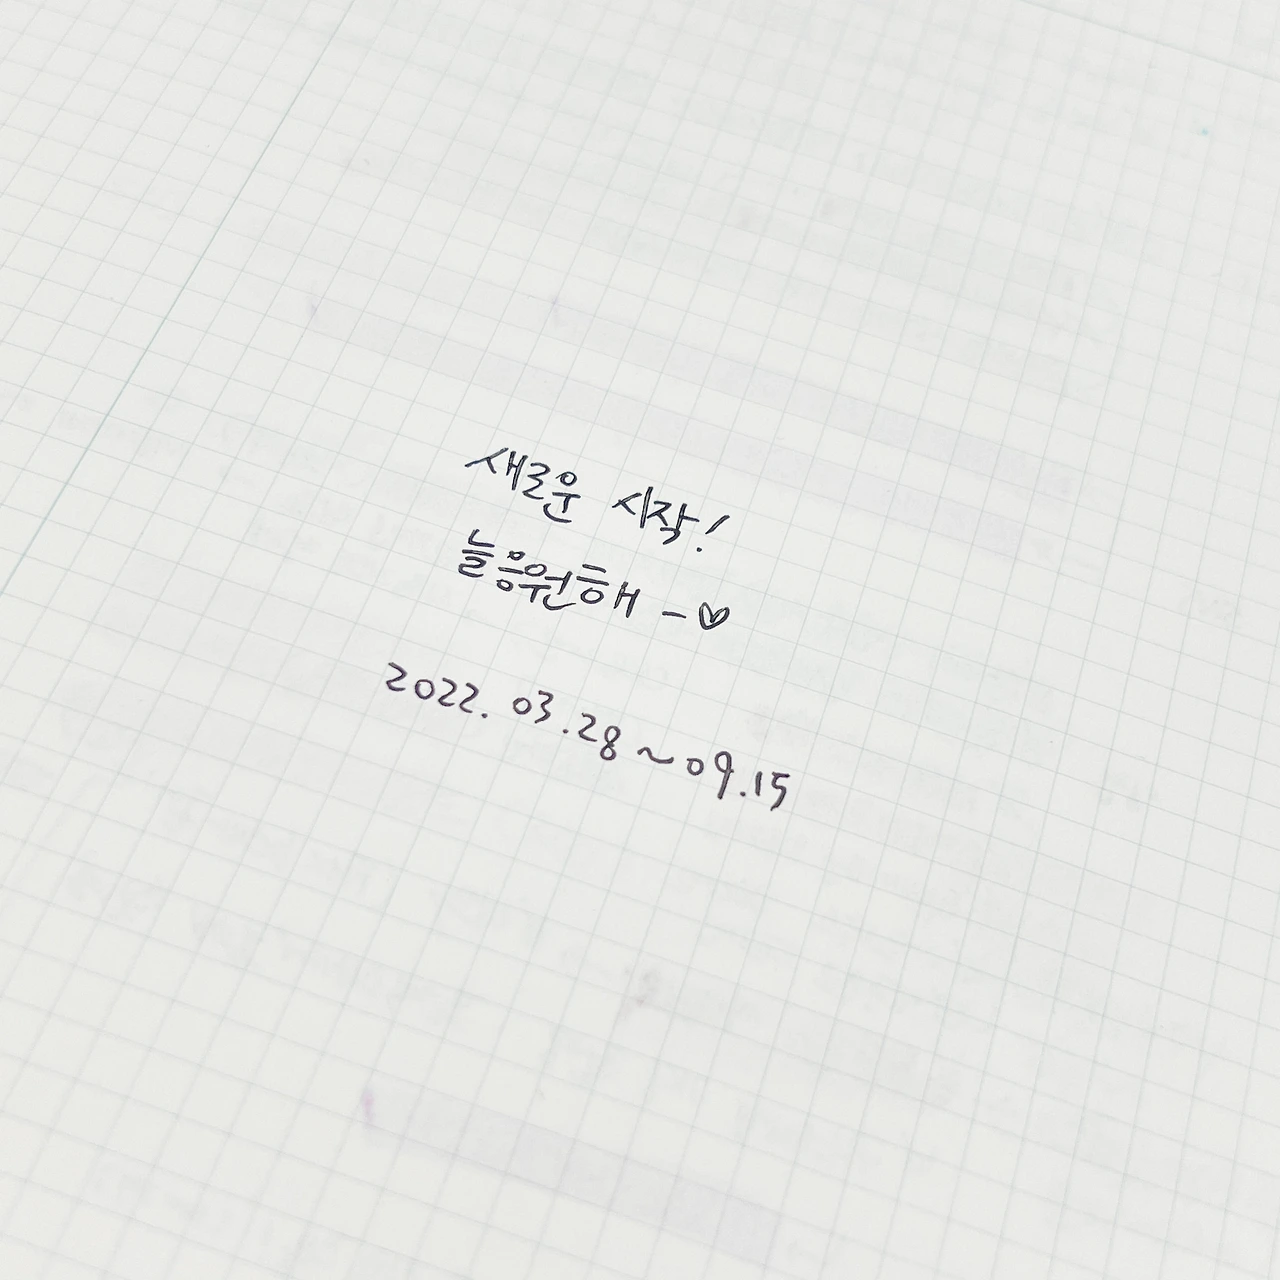 새로운 시작!
늘응원해 -♡
2022. 03.28 ~ 09.15